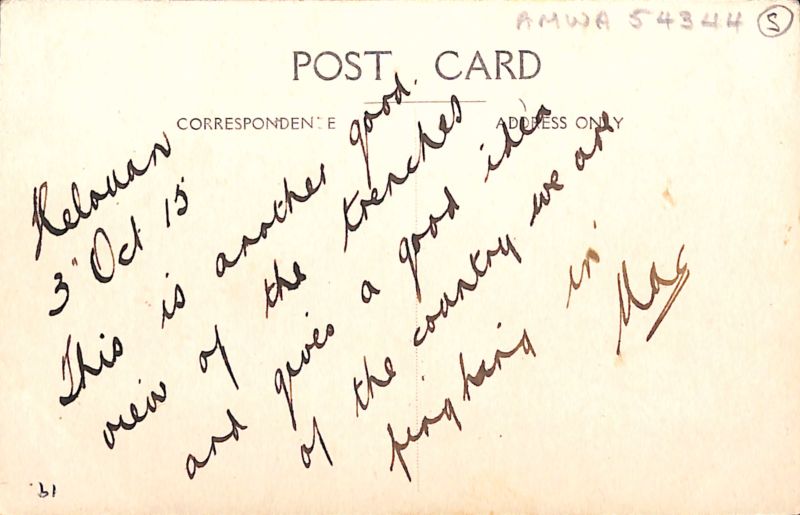 AMWA 54344 S
POST CARD
CORRESPONDENCE
ADDRESS ONLY
Helouan
3 Oct 15
This is another good
view of the trenches
and gives a good idea
of the country we are
fighting in
Mac
61